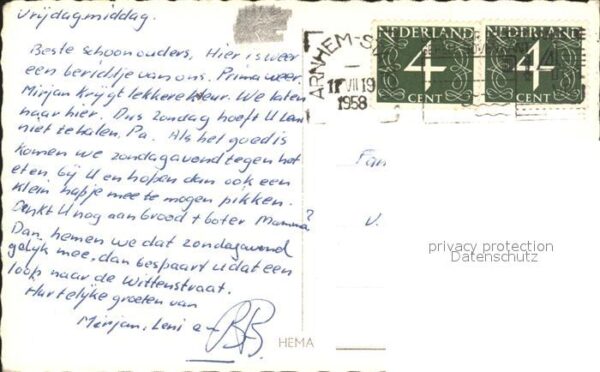 Vrijdagmiddag.
Beste schoonouders, Hier is weer
een berichtje van ons. Prima weer.
Mirjan krijgt lekkere kleur. We laten
haar hier. Dus zondag hoeft U Leni
niet te halen, Pa. Als het goed is
komen we zondagavond tegen het
eten bij U en hopen dan ook een
klein hapje mee te mogen pikken.
Denkt U nog aan brood + boter Mamma?
Dan, nemen we dat zondagavond
gelijk mee, dan bespaart U dat een
loop naar de Wittenstraat.
Hartelijke groeten van
Mirjan, Leni en BB
HEMA
ARNHEM-S
VII 19
1958
NEDERLAND
4
CENT
NEDERLAND
4
CENT
Fam
v.
privacy protection
Datenschutz